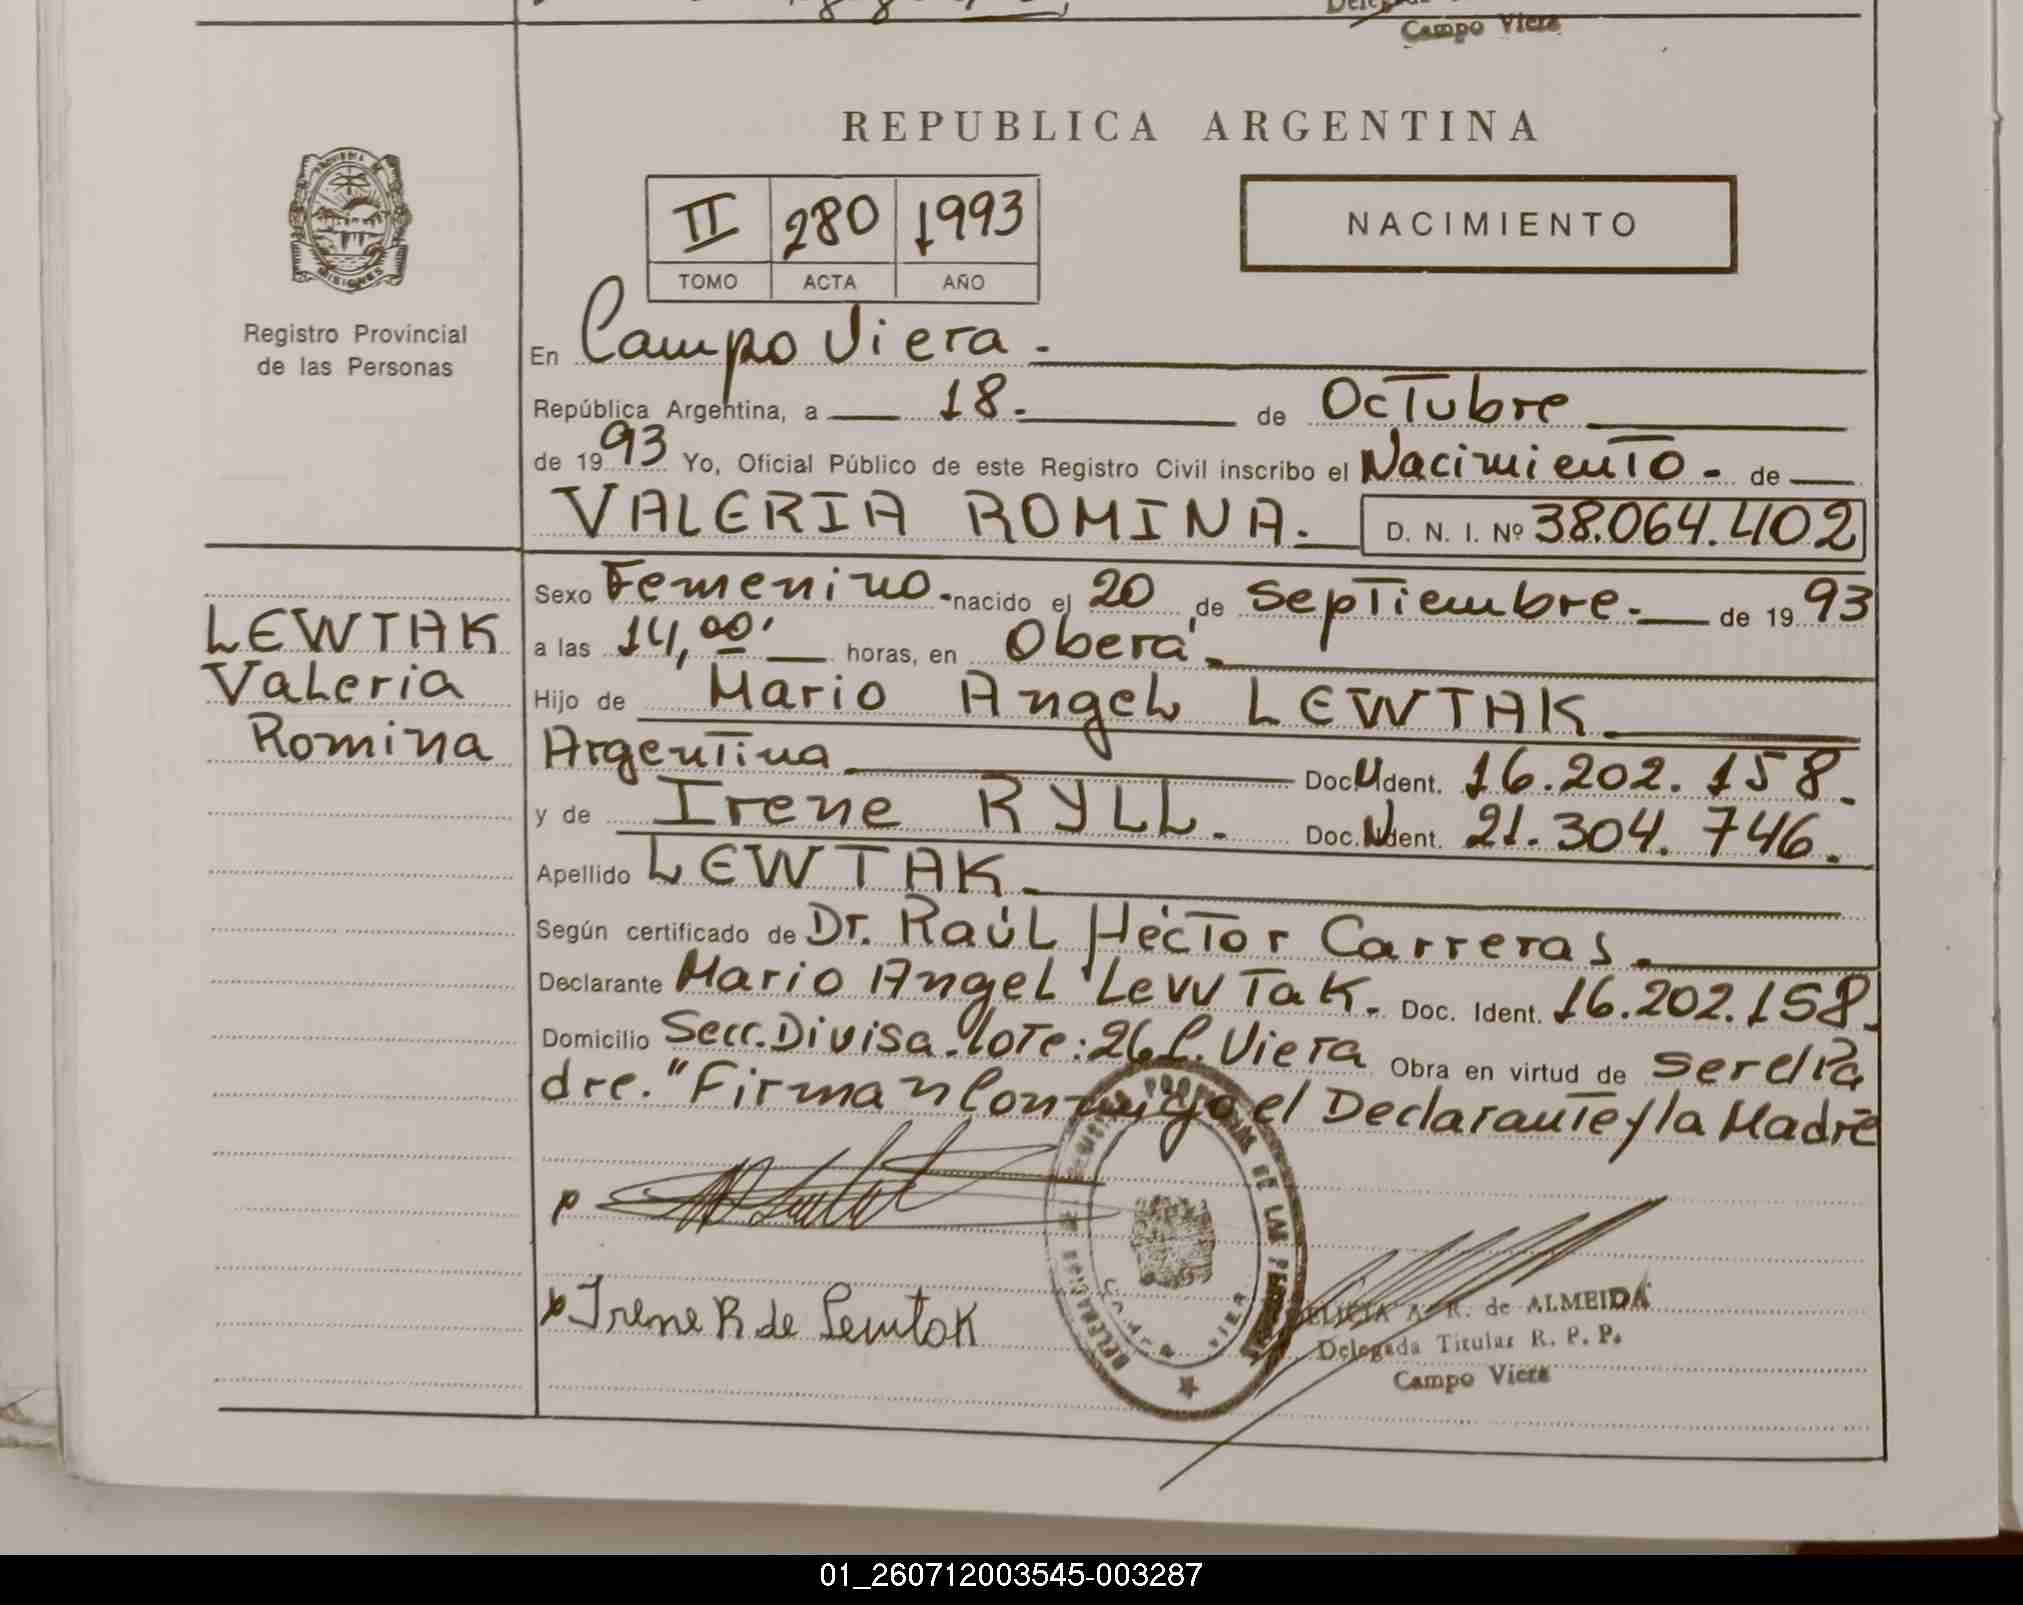 Campo Viera
REPUBLICA ARGENTINA
II 280 1993
TOMO ACTA AÑO
NACIMIENTO
PROVINCIA DE
MISIONES
Registro Provincial
de las Personas
En Campo Viera.
República Argentina, a 18. de Octubre
de 1993 Yo, Oficial Público de este Registro Civil inscribo el Nacimiento. de
VALERIA ROMINA. D. N. I. Nº 38.064.402
LEWTAK
Valeria
Romina
Sexo Femenino. nacido el 20 de Septiembre. de 1993
a las 14,00' horas, en Oberá.
Hijo de Mario Angel LEWTAK
Argentina Doc. Ident. 16.202.158.
y de Irene RYLL. Doc. Ident. 21.304.746.
Apellido LEWTAK.
Según certificado de Dr. Raúl Héctor Carreras.
Declarante Mario Angel Lewtak. Doc. Ident. 16.202.158.
Domicilio Secc. Divisa. lote: 26 C. Viera Obra en virtud de ser el Pa
dre. "Firman Conmigo el Declarante y la Madre
Irene R de Lewtak
A. R. de ALMEIDA
Delegada Titular R. P. P.
Campo Viera
01_260712003545-003287